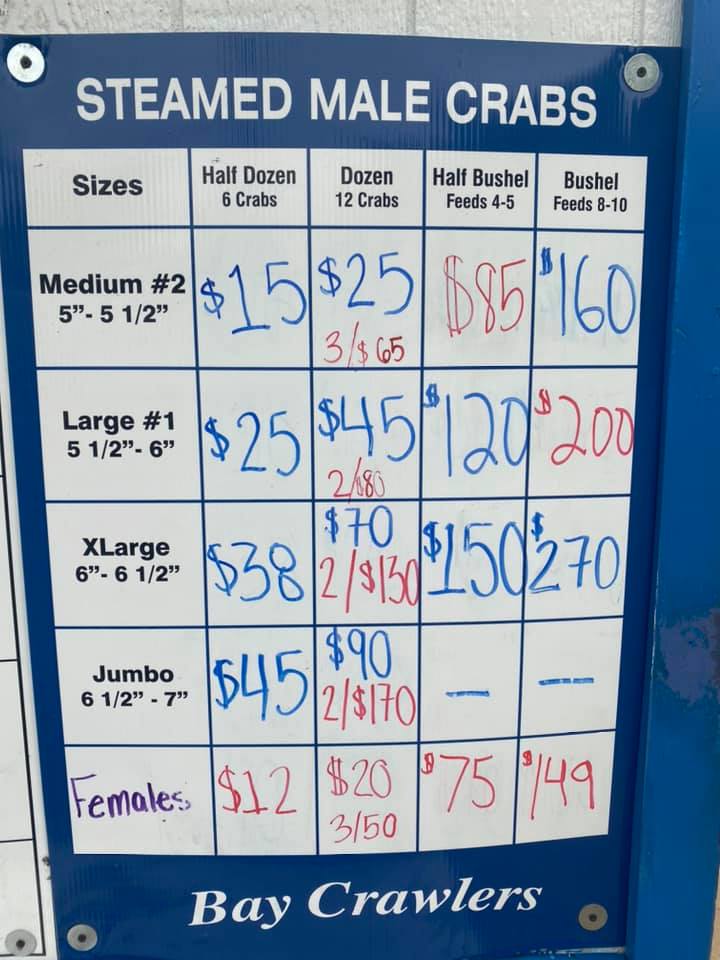 STEAMED MALE CRABS
Sizes
Half Dozen
6 Crabs
Dozen
12 Crabs
Half Bushel
Feeds 4-5
Bushel
Feeds 8-10
Medium #2
5”- 5 1/2”
$15
$25
3/$65
$85
$160
Large #1
5 1/2”- 6”
$25
$45
2/$80
$120
$200
XLarge
6”- 6 1/2”
$38
$70
2/$130
$150
$270
Jumbo
6 1/2” - 7”
$45
$90
2/$170
—
—
Females
$12
$20
3/50
$75
$149
Bay Crawlers